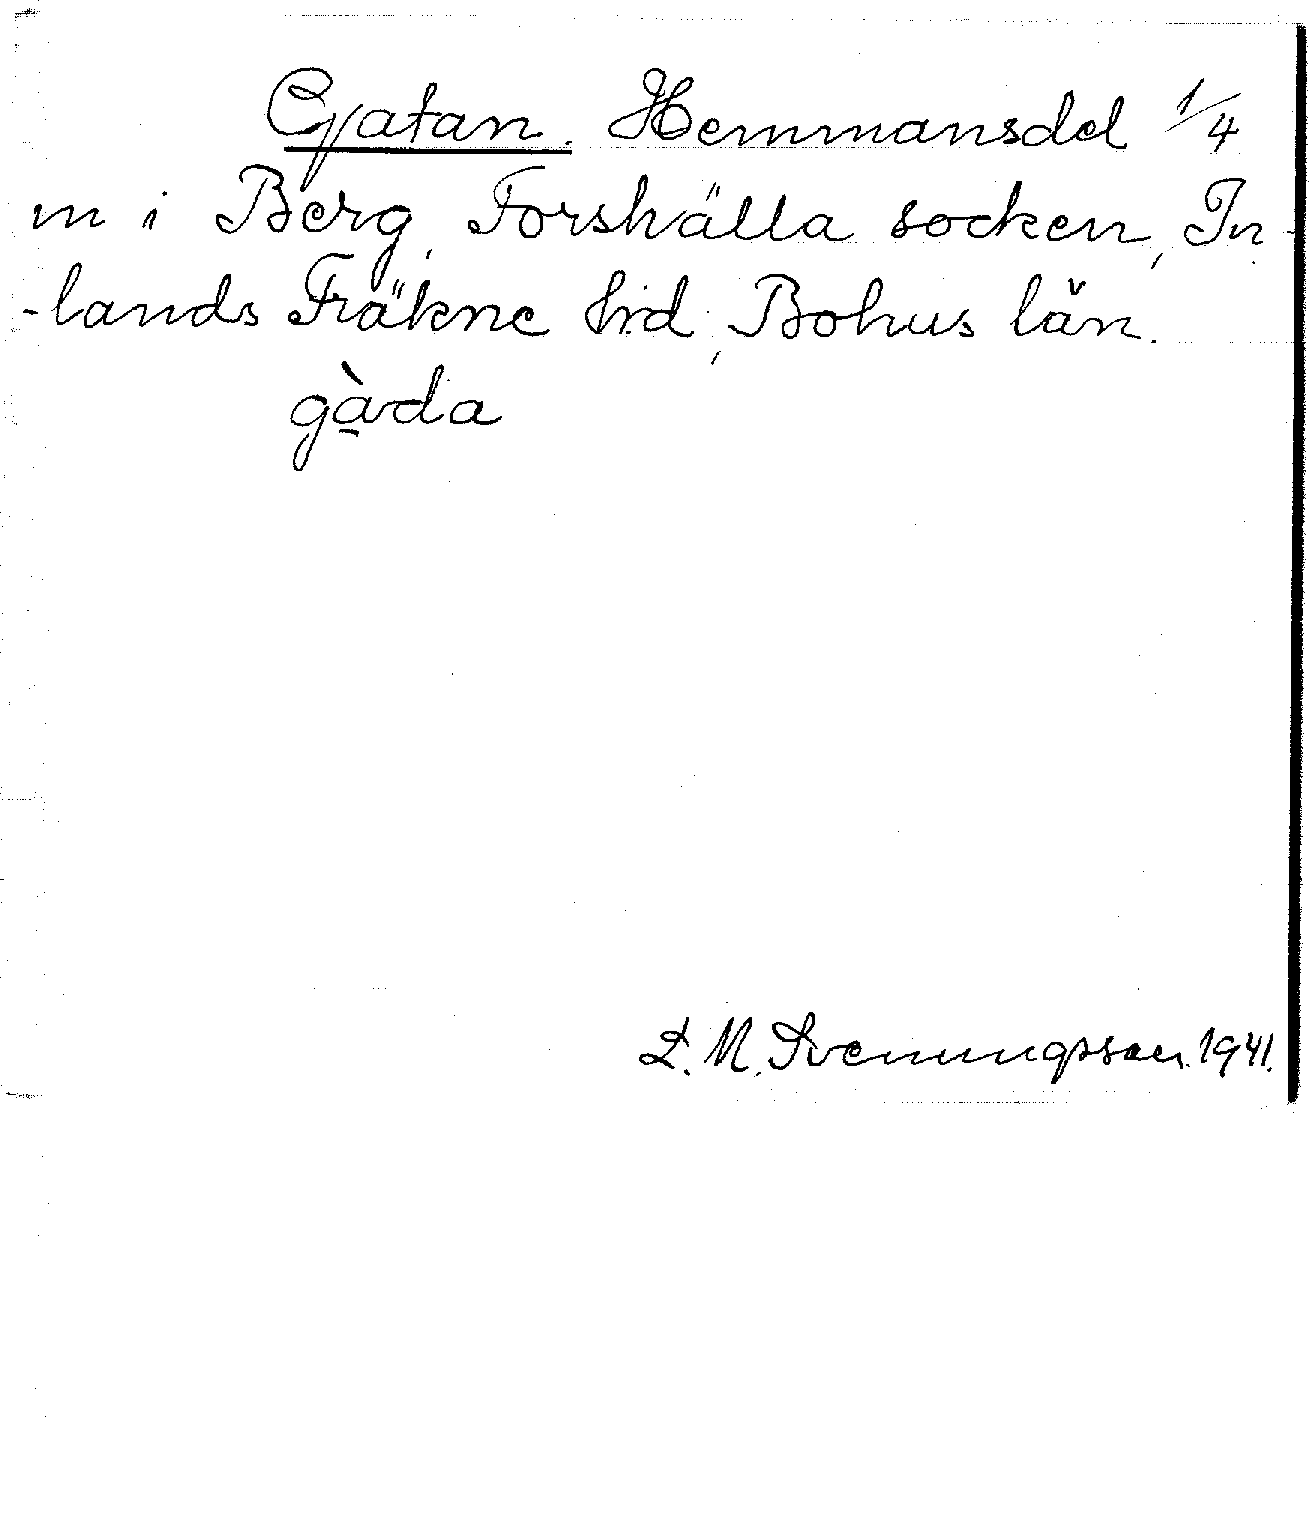 Gatan. Hemmansdel 1/4
m i Berg, Forshälla socken, In-
-lands Fräkne hrd, Bohus län.
gà̠da
L. M. Svenungsson. 1941.